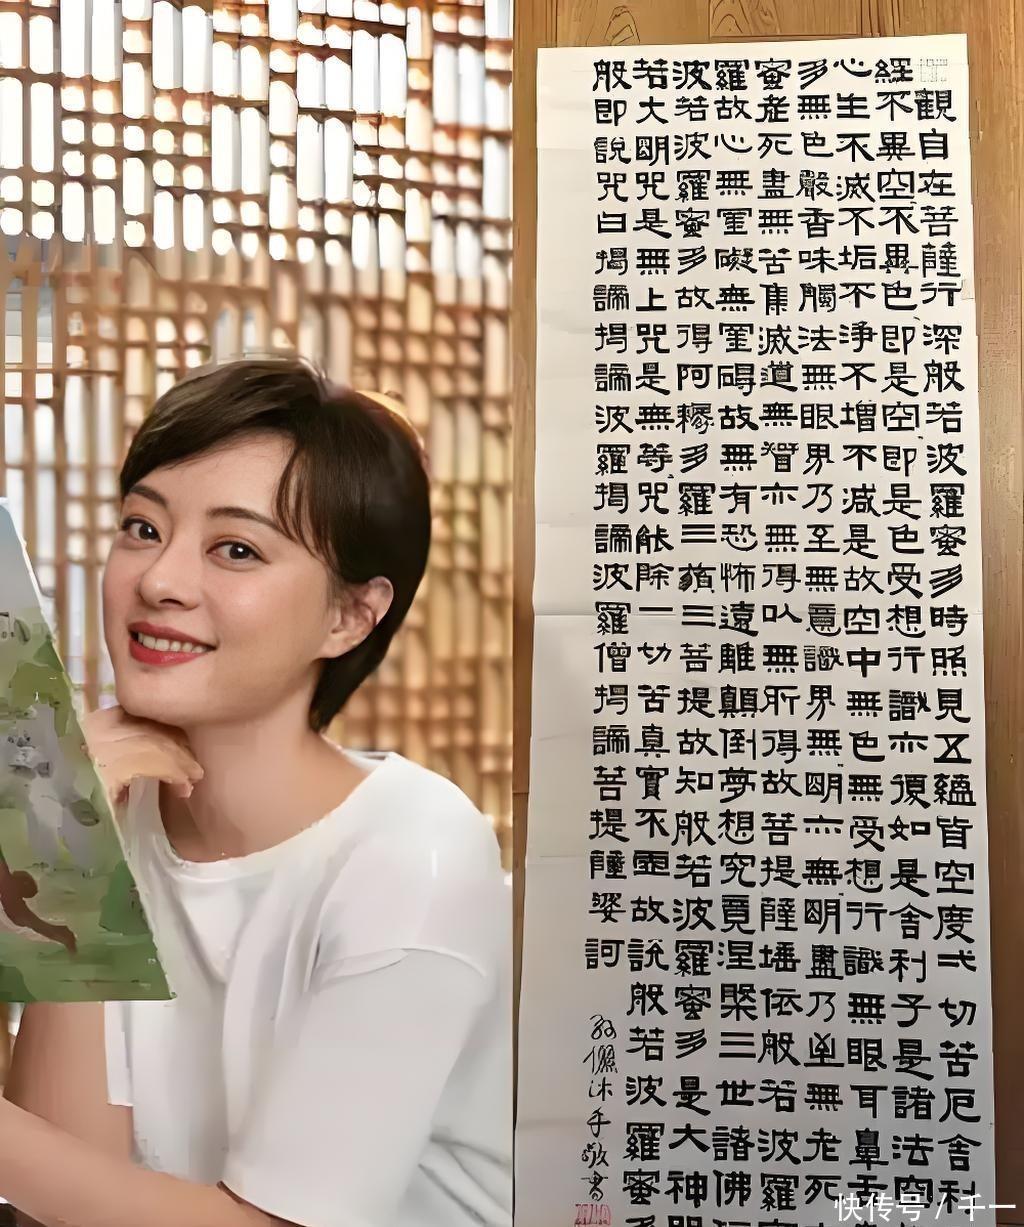 般若波羅蜜多心經
觀自在菩薩行深般若波羅蜜多時照見五蘊皆空度弌切苦厄舍利
不異空不異色即是空即是色受想行識亦復如是舍利子是諸法空
生不滅不垢不淨不增不減是故空中無色無受想行識無眼耳鼻舌
無色聲香味觸法無眼界乃至無意識界無明亦無明盡乃至無老死
老死盡無苦集滅道無智亦無得以無所得故菩提薩埵依般若波羅
故心無罣礙無罣碍故無有恐怖遠離顛倒夢想究竟涅槃三世諸佛
若波羅蜜多故得阿耨多羅三藐三菩提故知般若波羅蜜多是大神咒
大明咒是無上咒是無等咒能除一切苦真實不虛故說般若波羅蜜
即說咒曰揭諦揭諦波羅揭諦波羅僧揭諦菩提薩婆訶
孫儷沐手敬書
快传号 / 千一